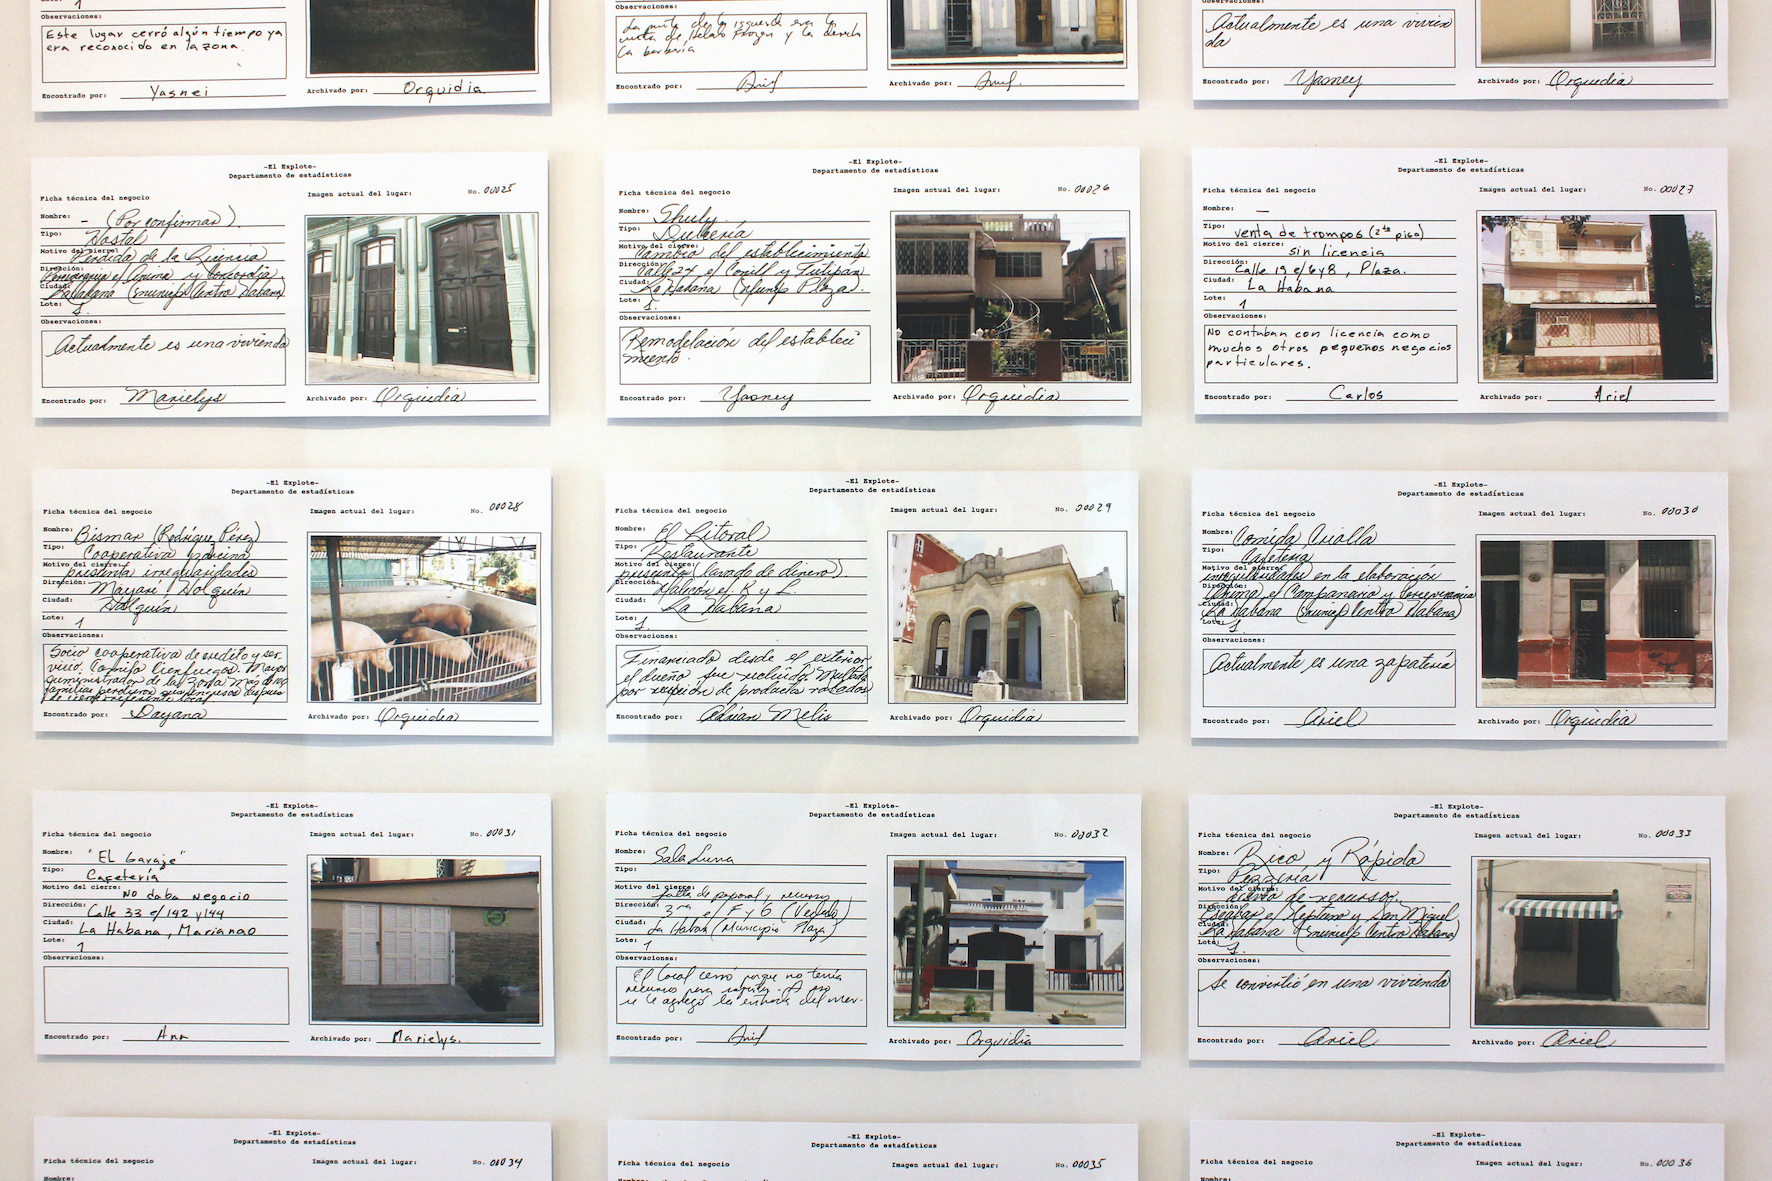 1
Observaciones:
Este lugar cerró algún tiempo ya
era reconocido en la zona.
Encontrado por: Yasnei
Archivado por: Orquidia
Observaciones:
La puerta de la izquierda era la
de Helado Frozen y la derecha
la barbería
Encontrado por: Ariel
Archivado por: Ariel.
Observaciones:
Actualmente es una vivien
da
Encontrado por: Yasney
Archivado por: Orquidia
-El Explote-
Departamento de estadísticas
Ficha técnica del negocio
Imagen actual del lugar:
No. 00025
Nombre: - (Por confirmar)
Tipo: Hostal
Motivo del cierre: Pérdida de la licencia
Dirección: Perseverancia e/ Ánima y Concordia
Ciudad: La Habana (municip Centro Habana)
Lote: 1.
Observaciones:
Actualmente es una vivienda
Encontrado por: Marielys
Archivado por: Orquidia
-El Explote-
Departamento de estadísticas
Ficha técnica del negocio
Imagen actual del lugar:
No. 00026
Nombre: Shuly.
Tipo: Dulcería
Motivo del cierre: Cambio del establecimiento
Dirección: Calle 24 e/ Conill y Tulipán
Ciudad: La Habana (Municip Plaza).
Lote: 1.
Observaciones:
Remodelación del estableci
miento.
Encontrado por: Yasney
Archivado por: Orquidia
-El Explote-
Departamento de estadísticas
Ficha técnica del negocio
Imagen actual del lugar:
No. 00027
Nombre: —
Tipo: venta de trompos (2do piso)
Motivo del cierre: sin licencia
Dirección: Calle 19 e/ 6 y 8, Plaza.
Ciudad: La Habana
Lote: 1
Observaciones:
No contaban con licencia como
muchos otros pequeños negocios
particulares.
Encontrado por: Carlos
Archivado por: Ariel
-El Explote-
Departamento de estadísticas
Ficha técnica del negocio
Imagen actual del lugar:
No. 00028
Nombre: Bismar (Rodríguez Pérez)
Tipo: Cooperativa porcina
Motivo del cierre: presenta irregularidades
Dirección: Mayarí, Holguín
Ciudad: Holguín
Lote: 1
Observaciones:
Socio cooperativa de crédito y ser
vicio. Camilo Cienfuegos. Mayor
suministrador de la zona. Más de
familias perdieron después
de cierre
Encontrado por: Dayana
Archivado por: Orquidia
-El Explote-
Departamento de estadísticas
Ficha técnica del negocio
Imagen actual del lugar:
No. 00029
Nombre: El Litoral
Tipo: Restaurante
Motivo del cierre: presunto (lavado de dinero)
Dirección: Malecón e/ K y L.
Ciudad: La Habana
Lote: 1.
Observaciones:
Financiado desde el exterior
el dueño fue recluido. Multado
por recepción de productos robados
Encontrado por: Adrian Melis
Archivado por: Orquidia
-El Explote-
Departamento de estadísticas
Ficha técnica del negocio
Imagen actual del lugar:
No. 00030
Nombre: Comida Criolla
Tipo: Cafetería
Motivo del cierre: irregularidades en la elaboración
Dirección: Ánima e/ Campanario y Perseverancia
Ciudad: La Habana (municip Centro Habana)
Lote: 1.
Observaciones:
Actualmente es una zapatería
Encontrado por: Ariel
Archivado por: Orquidia
-El Explote-
Departamento de estadísticas
Ficha técnica del negocio
Imagen actual del lugar:
No. 00031
Nombre: "EL Garaje"
Tipo: Cafetería
Motivo del cierre: No daba negocio
Dirección: Calle 33 e/ 142 y 144
Ciudad: La Habana, Marianao
Lote: 1
Observaciones:
Encontrado por: Ana
Archivado por: Marielys.
-El Explote-
Departamento de estadísticas
Ficha técnica del negocio
Imagen actual del lugar:
No. 00032
Nombre: Sala Luna
Tipo:
Motivo del cierre: falta de personal y recursos
Dirección: 3ra e/ F y G (Vedado)
Ciudad: La Habana (Municipio Plaza)
Lote: 1
Observaciones:
El local cerró porque no tenía
recursos para . A eso
se le agregó la entrada del mar.
Encontrado por: Ariel
Archivado por: Orquidia
-El Explote-
Departamento de estadísticas
Ficha técnica del negocio
Imagen actual del lugar:
No. 00033
Nombre: Rico y Rápido
Tipo: Pizzería
Motivo del cierre: de recursos.
Dirección: Escobar e/ Neptuno y San Miguel
Ciudad: La Habana (municip Centro Habana)
Lote: 1.
Observaciones:
Se convirtió en una vivienda
Encontrado por: Ariel
Archivado por: Ariel
-El Explote-
Departamento de estadísticas
Ficha técnica del negocio
Imagen actual del lugar:
No. 00034
Nombre:
-El Explote-
Departamento de estadísticas
Ficha técnica del negocio
Imagen actual del lugar:
No. 00035
-El Explote-
Departamento de estadísticas
Ficha técnica del negocio
Imagen actual del lugar:
No. 00036
Nombre: